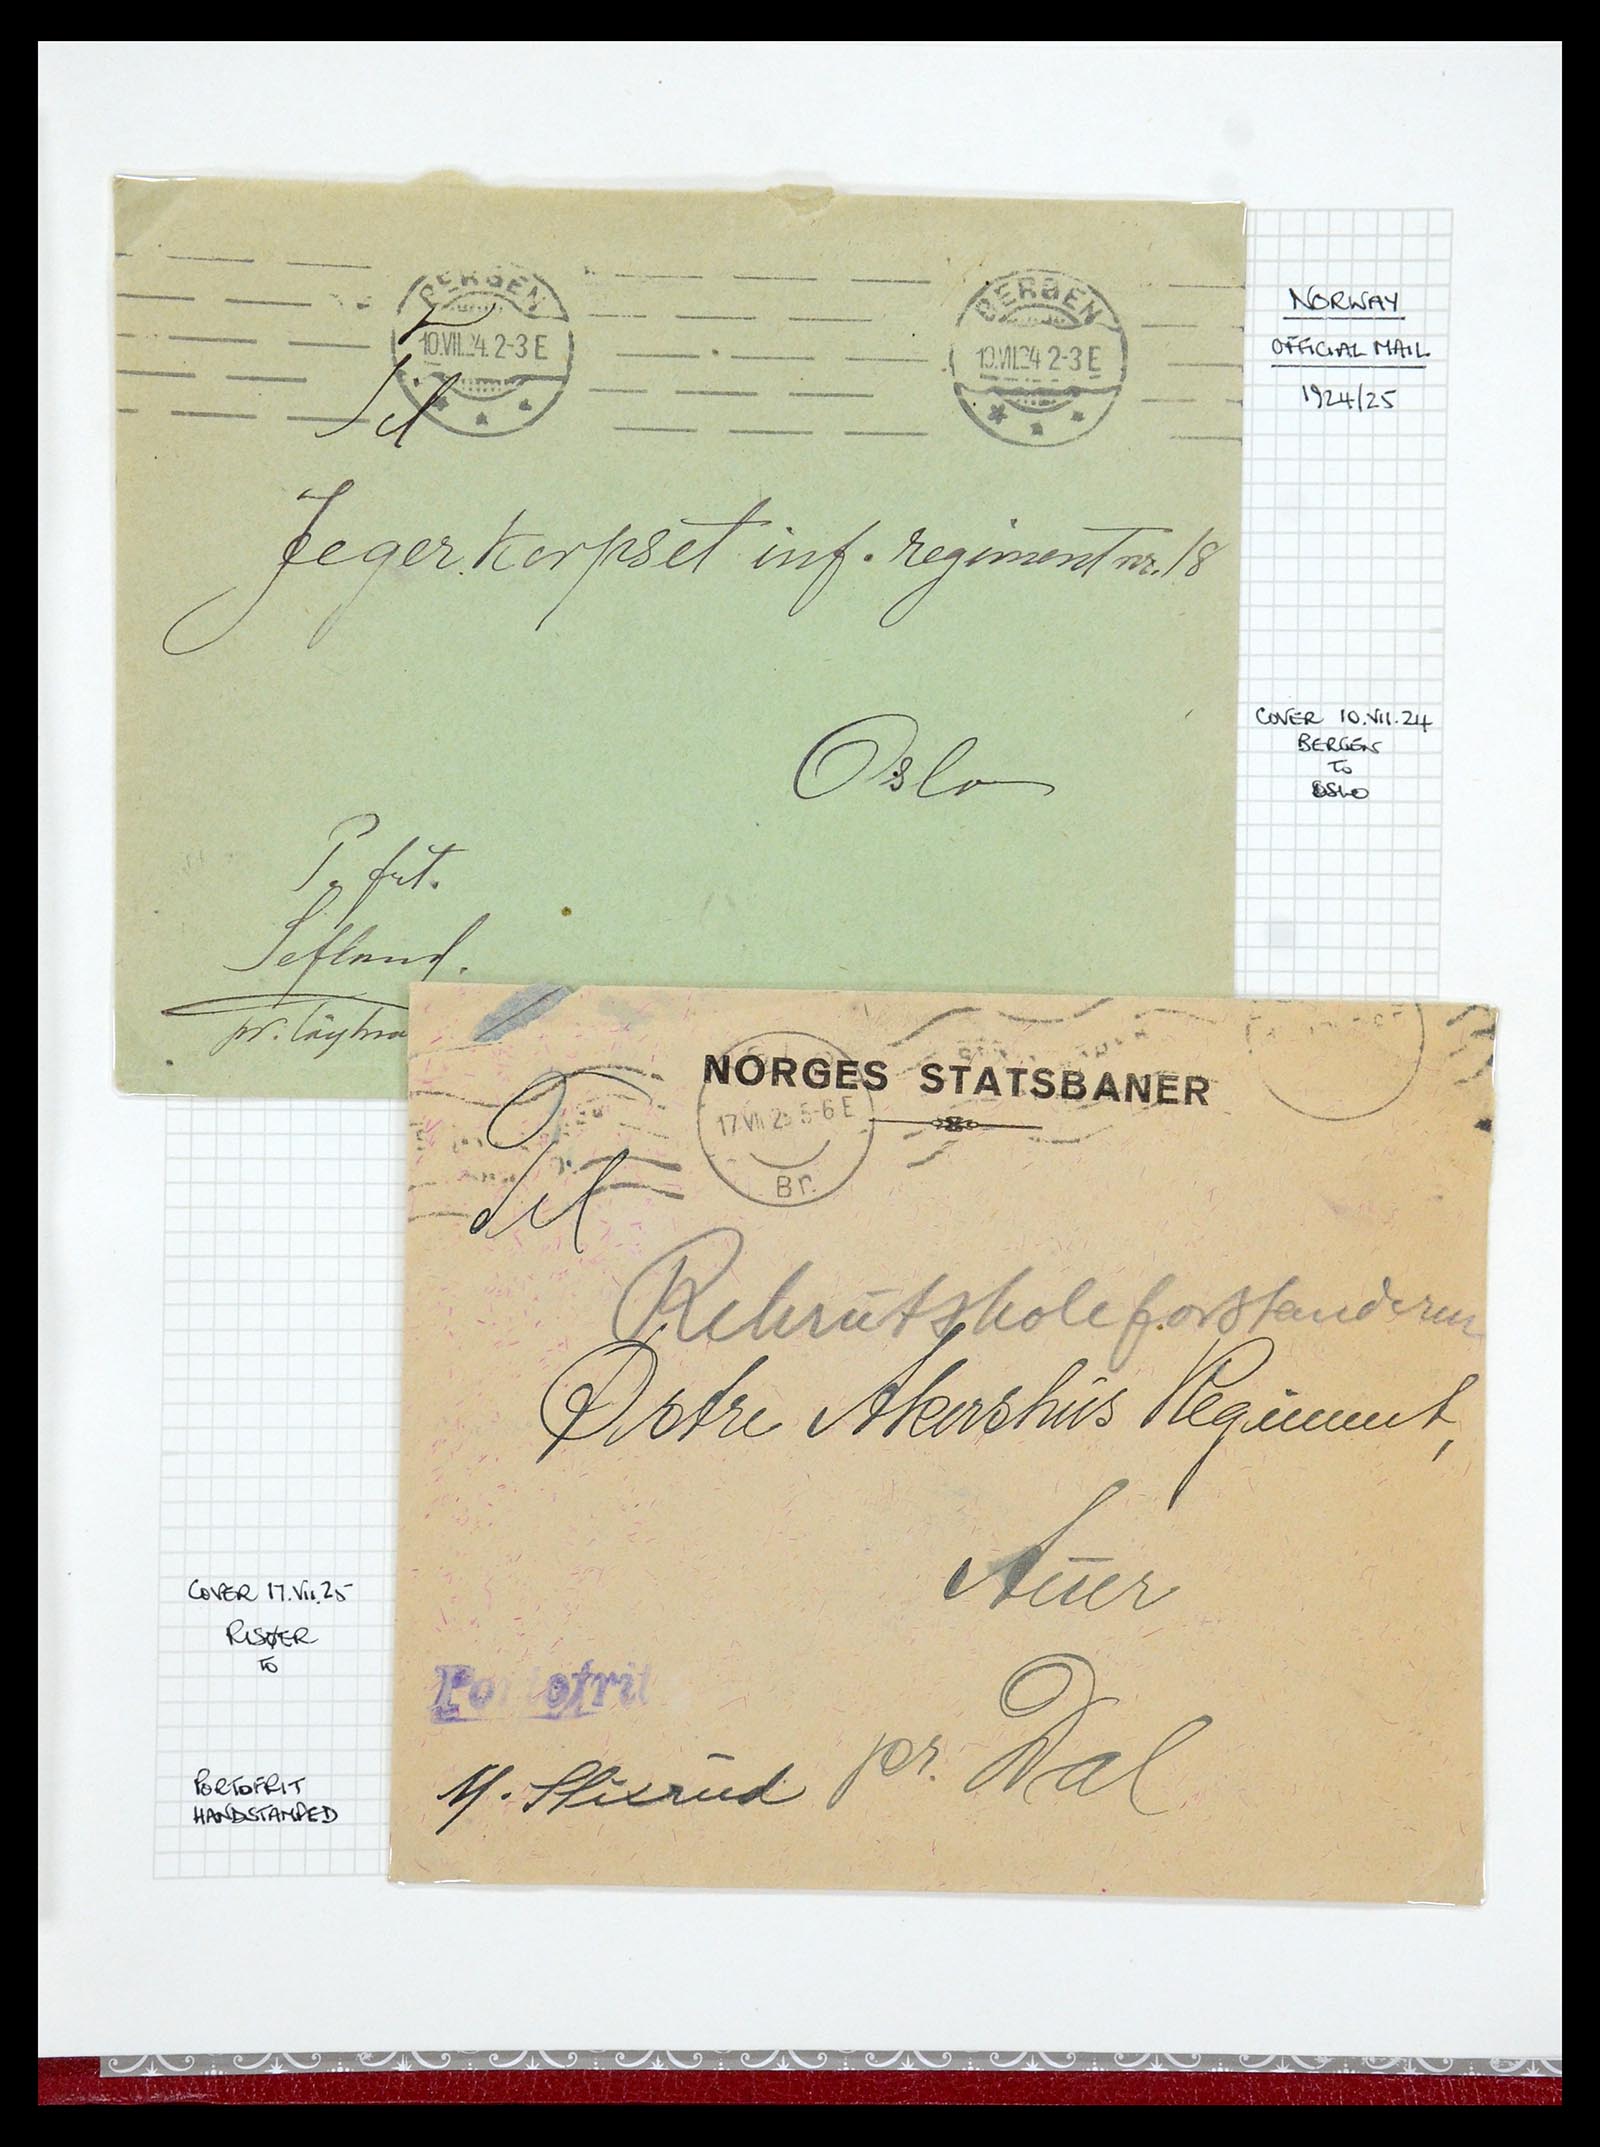 BERGEN
10.VII.24. 2-3 E
BERGEN
10.VII.24 2-3 E
Til
Jegerkorpset inf. regiment nr. 18
Oslo
P. frit.
NORWAY
OFFICIAL MAIL
1924/25
COVER 10.VII.24
BERGEN
TO
OSLO
NORGES STATSBANER
17 VII 25 5-6 E
Br.
Til
Rekrutskoleforstanderen
Østre Akershus Regiment,
Auer
pr. Dal
Portofrit
COVER 17.VII.25
RISØER
TO
PORTOFRIT
HANDSTAMPED